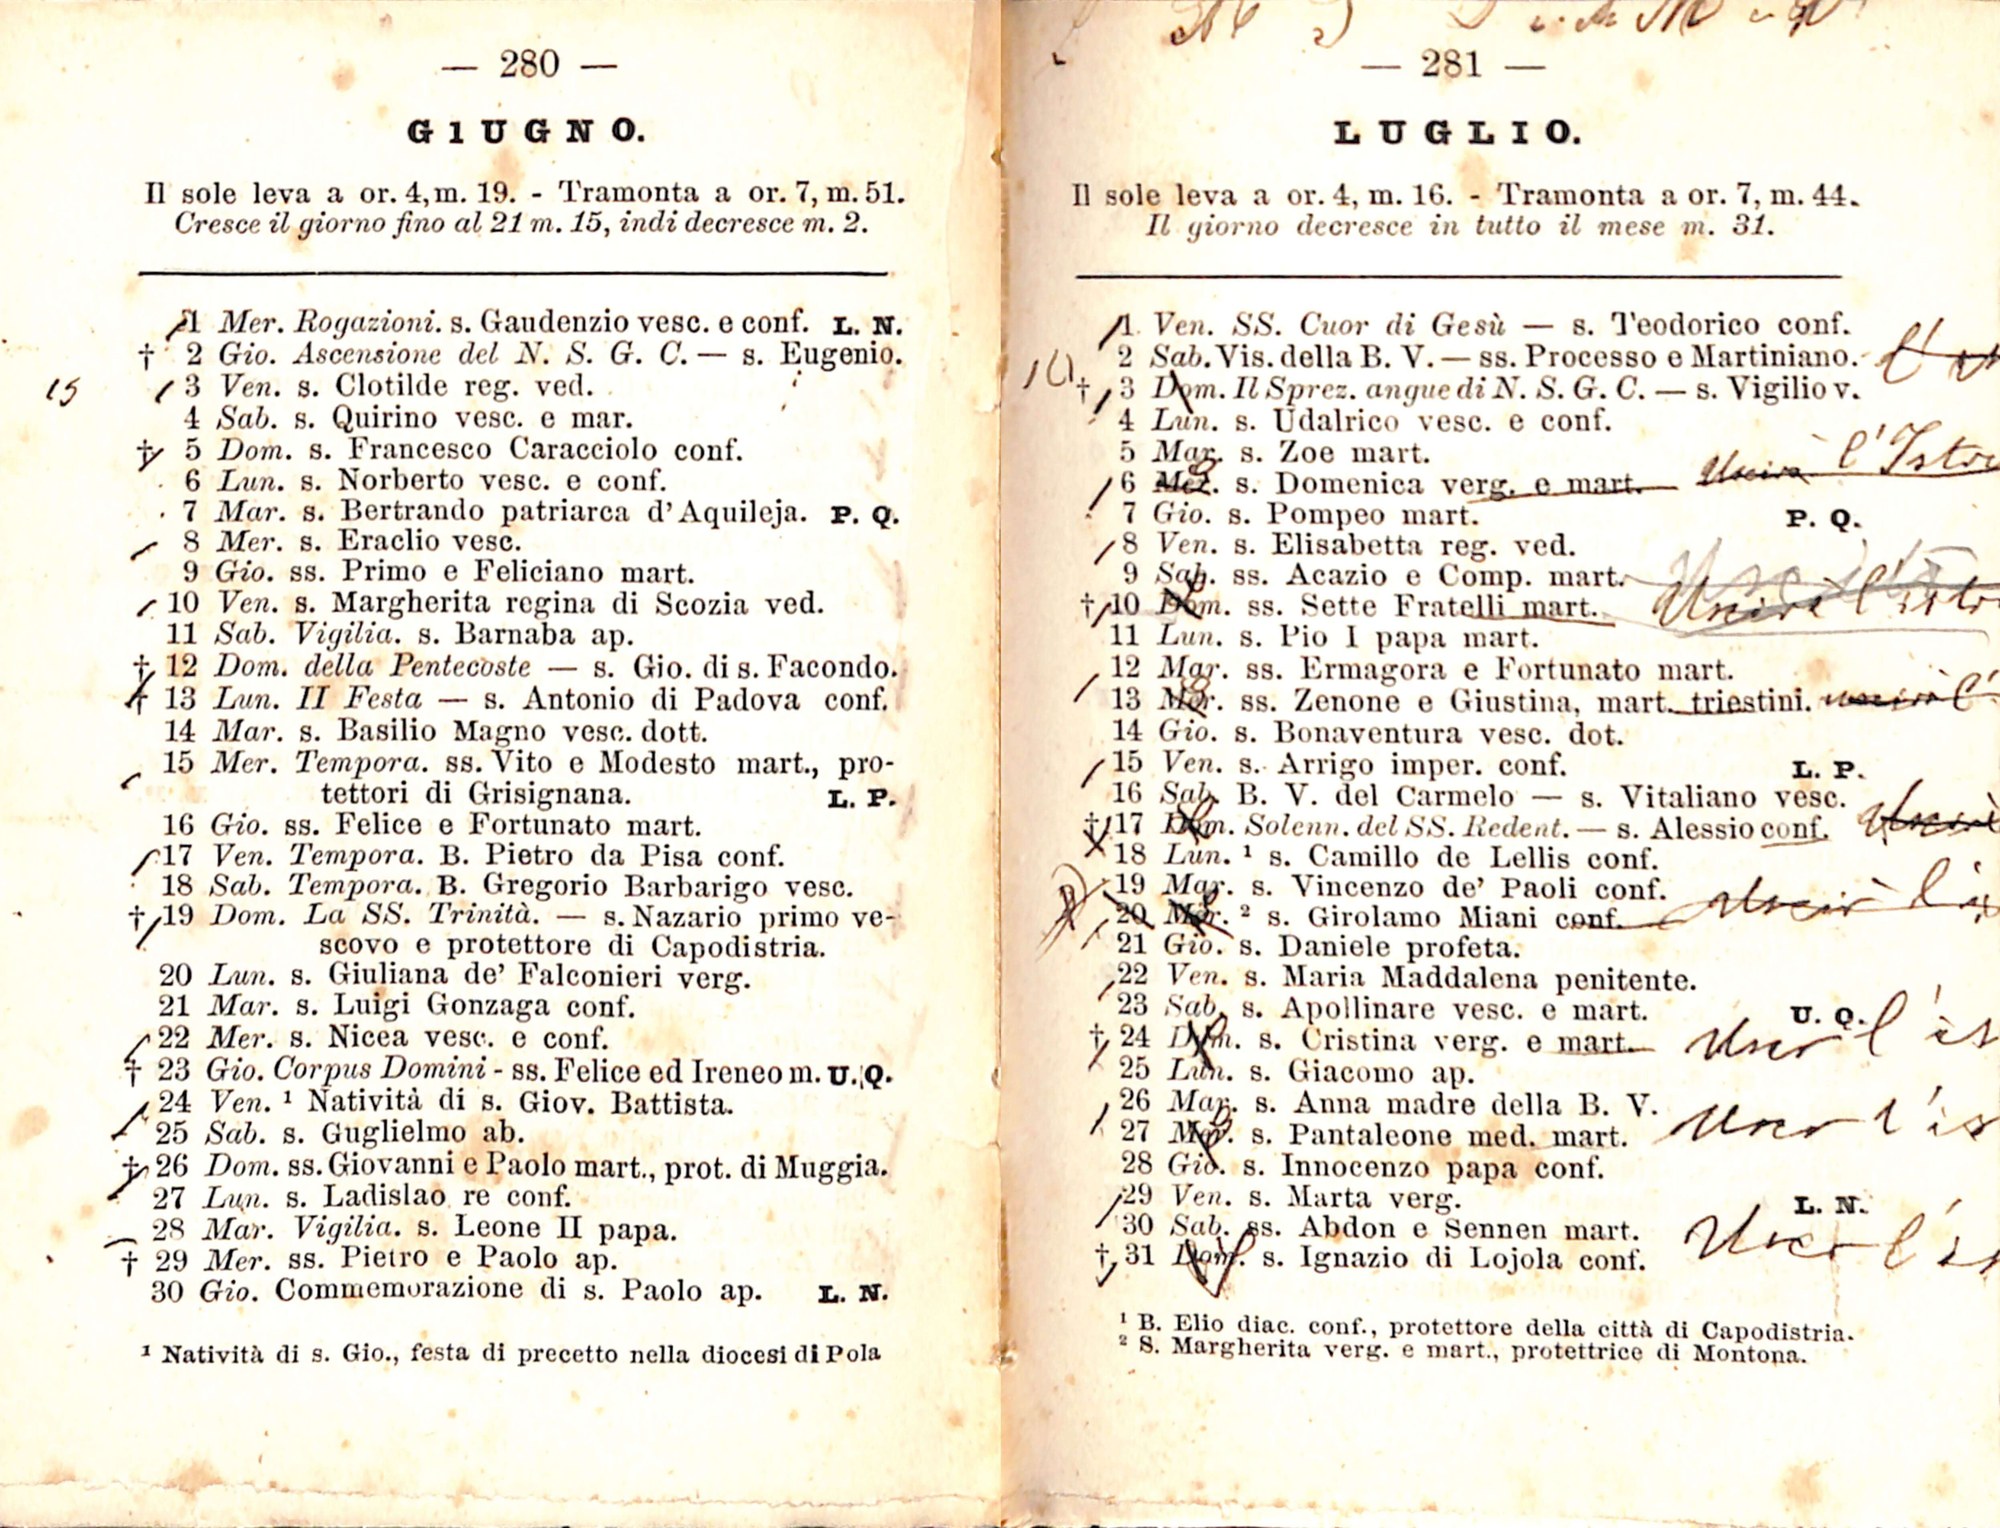 — 280 —
G1UGNO.
Il sole leva a or. 4, m. 19. - Tramonta a or. 7, m. 51.
Cresce il giorno fino al 21 m. 15, indi decresce m. 2.
1 Mer. Rogazioni. s. Gaudenzio vesc. e conf. L. N.
† 2 Gio. Ascensione del N. S. G. C. — s. Eugenio.
15 3 Ven. s. Clotilde reg. ved.
4 Sab. s. Quirino vesc. e mar.
† 5 Dom. s. Francesco Caracciolo conf.
6 Lun. s. Norberto vesc. e conf.
7 Mar. s. Bertrando patriarca d'Aquileja. P. Q.
8 Mer. s. Eraclio vesc.
9 Gio. ss. Primo e Feliciano mart.
10 Ven. s. Margherita regina di Scozia ved.
11 Sab. Vigilia. s. Barnaba ap.
† 12 Dom. della Pentecoste — s. Gio. di s. Facondo.
† 13 Lun. II Festa — s. Antonio di Padova conf.
14 Mar. s. Basilio Magno vesc. dott.
15 Mer. Tempora. ss. Vito e Modesto mart., pro-
tettori di Grisignana. L. P.
16 Gio. ss. Felice e Fortunato mart.
17 Ven. Tempora. B. Pietro da Pisa conf.
18 Sab. Tempora. B. Gregorio Barbarigo vesc.
† 19 Dom. La SS. Trinità. — s. Nazario primo ve-
scovo e protettore di Capodistria.
20 Lun. s. Giuliana de' Falconieri verg.
21 Mar. s. Luigi Gonzaga conf.
22 Mer. s. Nicea vesc. e conf.
† 23 Gio. Corpus Domini - ss. Felice ed Ireneo m. U. Q.
24 Ven. ¹ Natività di s. Giov. Battista.
25 Sab. s. Guglielmo ab.
† 26 Dom. ss. Giovanni e Paolo mart., prot. di Muggia.
27 Lun. s. Ladislao re conf.
28 Mar. Vigilia. s. Leone II papa.
† 29 Mer. ss. Pietro e Paolo ap.
30 Gio. Commemorazione di s. Paolo ap. L. N.
¹ Natività di s. Gio., festa di precetto nella diocesi di Pola
— 281 —
LUGLIO.
Il sole leva a or. 4, m. 16. - Tramonta a or. 7, m. 44.
Il giorno decresce in tutto il mese m. 31.
1 Ven. SS. Cuor di Gesù — s. Teodorico conf.
2 Sab. Vis. della B. V. — ss. Processo e Martiniano.
† 3 Dom. Il Sprez. angue di N. S. G. C. — s. Vigilio v.
4 Lun. s. Udalrico vesc. e conf.
5 Mar. s. Zoe mart.
6 Mer. s. Domenica verg. e mart. Uscirà l'Istri
7 Gio. s. Pompeo mart. P. Q.
8 Ven. s. Elisabetta reg. ved.
9 Sab. ss. Acazio e Comp. mart.
† 10 Dom. ss. Sette Fratelli mart. Uscirà l'istri
11 Lun. s. Pio I papa mart.
12 Mar. ss. Ermagora e Fortunato mart.
13 Mer. ss. Zenone e Giustina, mart. triestini. uscirà l'
14 Gio. s. Bonaventura vesc. dot.
15 Ven. s. Arrigo imper. conf. L. P.
16 Sab. B. V. del Carmelo — s. Vitaliano vesc.
† 17 Dom. Solenn. del SS. Redent. — s. Alessio conf. Uscirà
18 Lun. ¹ s. Camillo de Lellis conf.
19 Mar. s. Vincenzo de' Paoli conf.
20 Mer. ² s. Girolamo Miani conf. Uscirà l'is
21 Gio. s. Daniele profeta.
22 Ven. s. Maria Maddalena penitente.
23 Sab. s. Apollinare vesc. e mart. U. Q.
† 24 Dom. s. Cristina verg. e mart. l'is
25 Lun. s. Giacomo ap.
26 Mar. s. Anna madre della B. V.
27 Mer. s. Pantaleone med. mart. l'is
28 Gio. s. Innocenzo papa conf.
29 Ven. s. Marta verg. L. N.
30 Sab. ss. Abdon e Sennen mart.
† 31 Dom. s. Ignazio di Lojola conf. l'is
¹ B. Elio diac. conf., protettore della città di Capodistria.
² S. Margherita verg. e mart., protettrice di Montona.